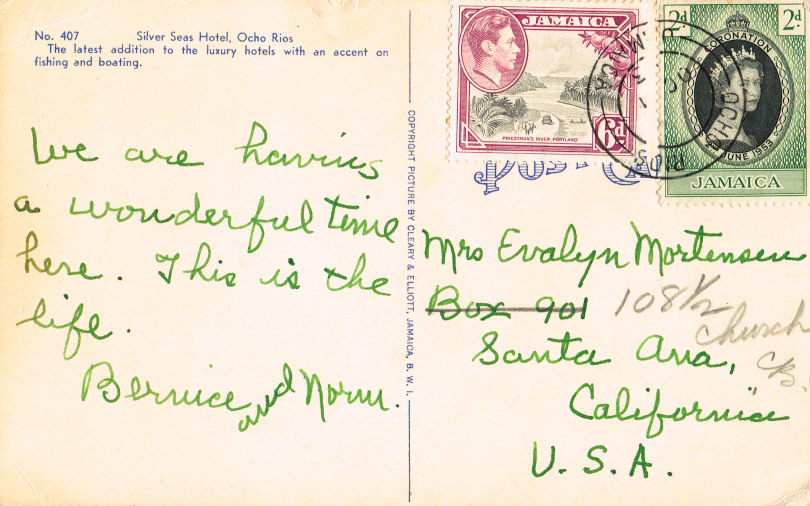 No. 407 Silver Seas Hotel, Ocho Rios
The latest addition to the luxury hotels with an accent on
fishing and boating.
We are having
a wonderful time
here. This is the
life.
Bernice and Norm.
COPYRIGHT PICTURE BY CLEARY & ELLIOTT, JAMAICA, B. W. I.
JAMAICA
PRIESTMAN'S RIVER, PORTLAND
6d
2d 2d
CORONATION
2 JUNE 1953
JAMAICA
OCHO RIOS
POST CA
Mrs Evalyn Mortensen
Box 901 108 1/2
Church
Santa Ana,
California
U. S. A.